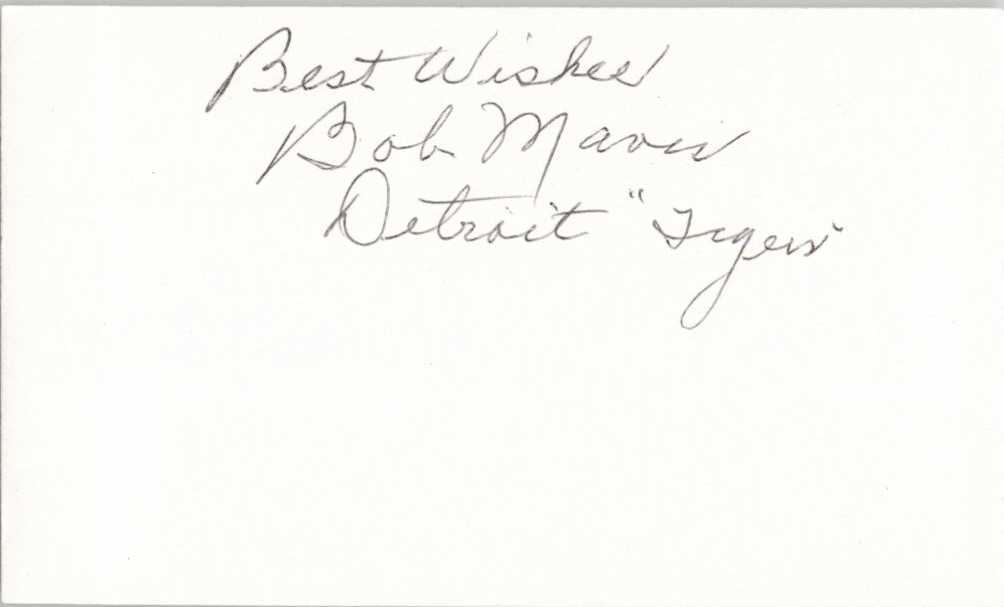 Best Wishes
Bob Mavis
Detroit "Tigers"